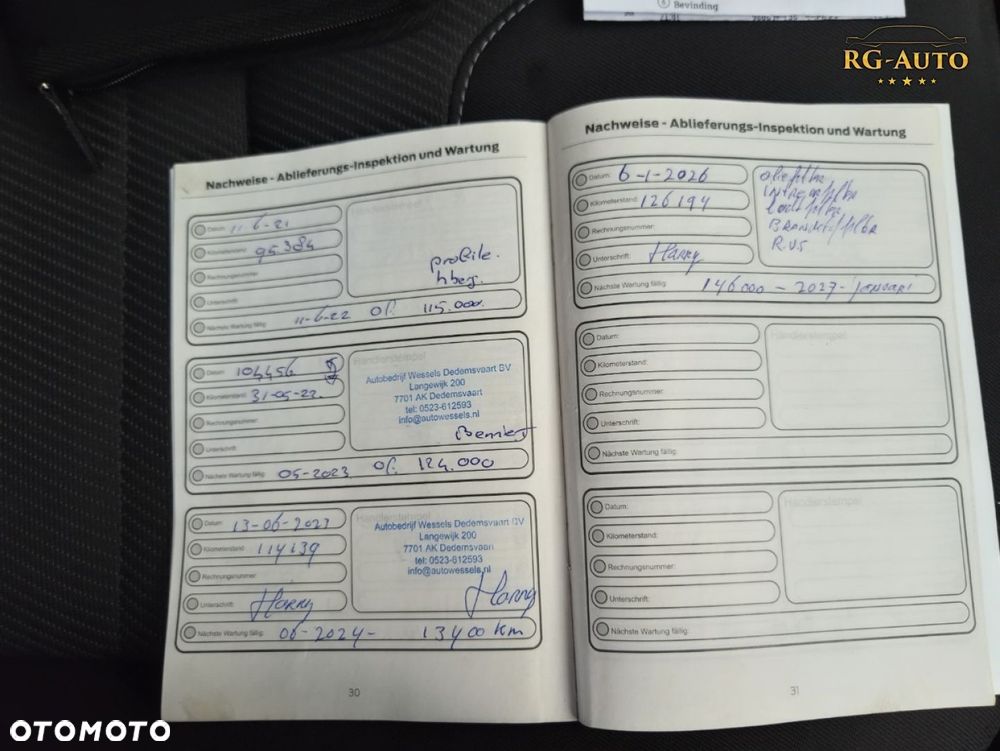 6 Bevinding
RG-AUTO
Nachweise - Ablieferungs-Inspektion und Wartung
Datum: 11-6-21
Kilometerstand: 95.384
Rechnungsnummer:
Unterschrift:
Händlerstempel
profile.
hberg.
Nächste Wartung fällig: 11-6-22 of 115.000.
Datum: 104456
Kilometerstand: 31-05-22.
Rechnungsnummer:
Unterschrift:
Händlerstempel
Autobedrijf Wessels Dedemsvaart BV
Langewijk 200
7701 AK Dedemsvaart
tel: 0523-612593
info@autowessels.nl
Nächste Wartung fällig: 05-2023 of. 124.000
Datum: 13-06-2023
Kilometerstand: 114139
Rechnungsnummer:
Unterschrift: Harry
Händlerstempel
Autobedrijf Wessels Dedemsvaart BV
Langewijk 200
7701 AK Dedemsvaart
tel: 0523-612593
info@autowessels.nl
Harry
Nächste Wartung fällig: 06-2024- 13400 km
30
Nachweise - Ablieferungs-Inspektion und Wartung
Datum: 6-1-2026
Kilometerstand: 126194
Rechnungsnummer:
Unterschrift: Harry
oliefilter
interieurfilter
luchtfilter
Brandstoffilter
R.V.S
Nächste Wartung fällig: 146000 - 2027 - januari
Datum:
Kilometerstand:
Rechnungsnummer:
Unterschrift:
Händlerstempel
Nächste Wartung fällig:
Datum:
Kilometerstand:
Rechnungsnummer:
Unterschrift:
Händlerstempel
Nächste Wartung fällig:
31
OTOMOTO